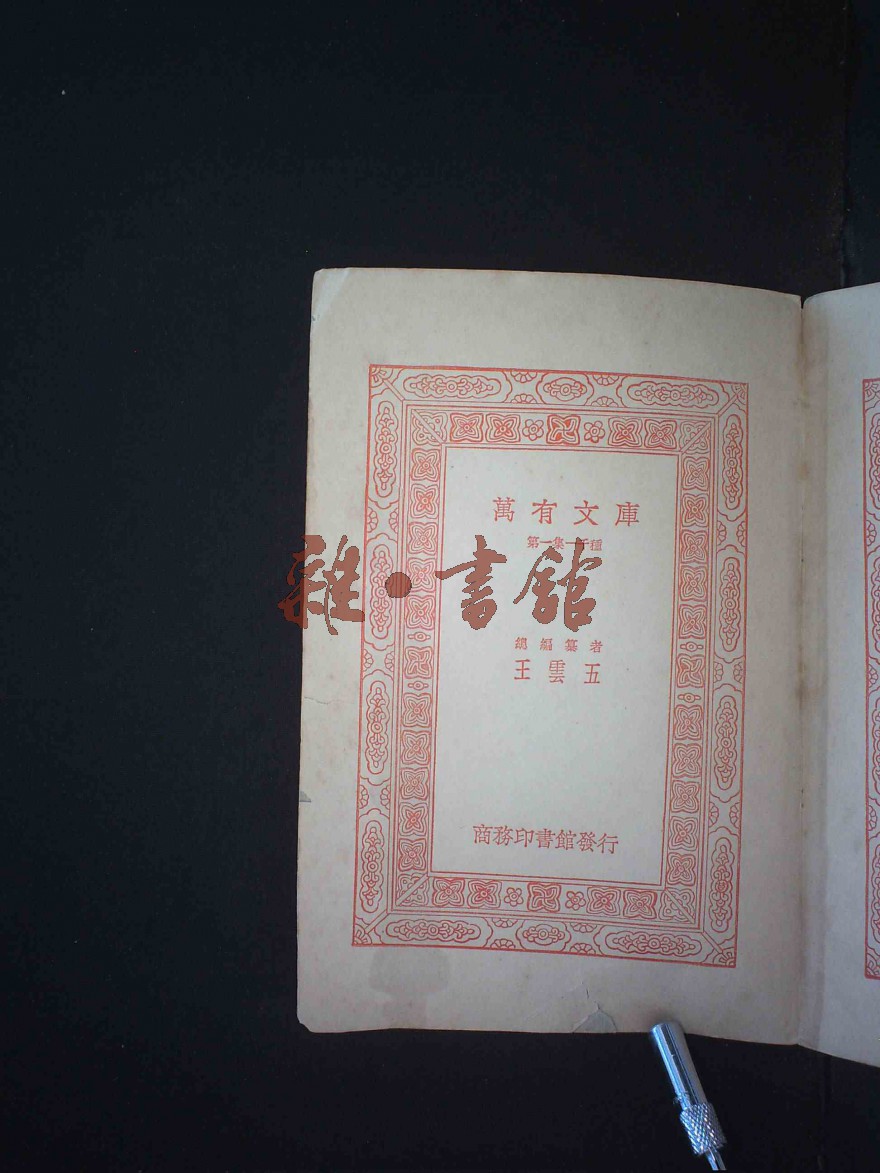 萬有文庫
第一集一千種
雜·書館
總編纂者
王雲五
商務印書館發行